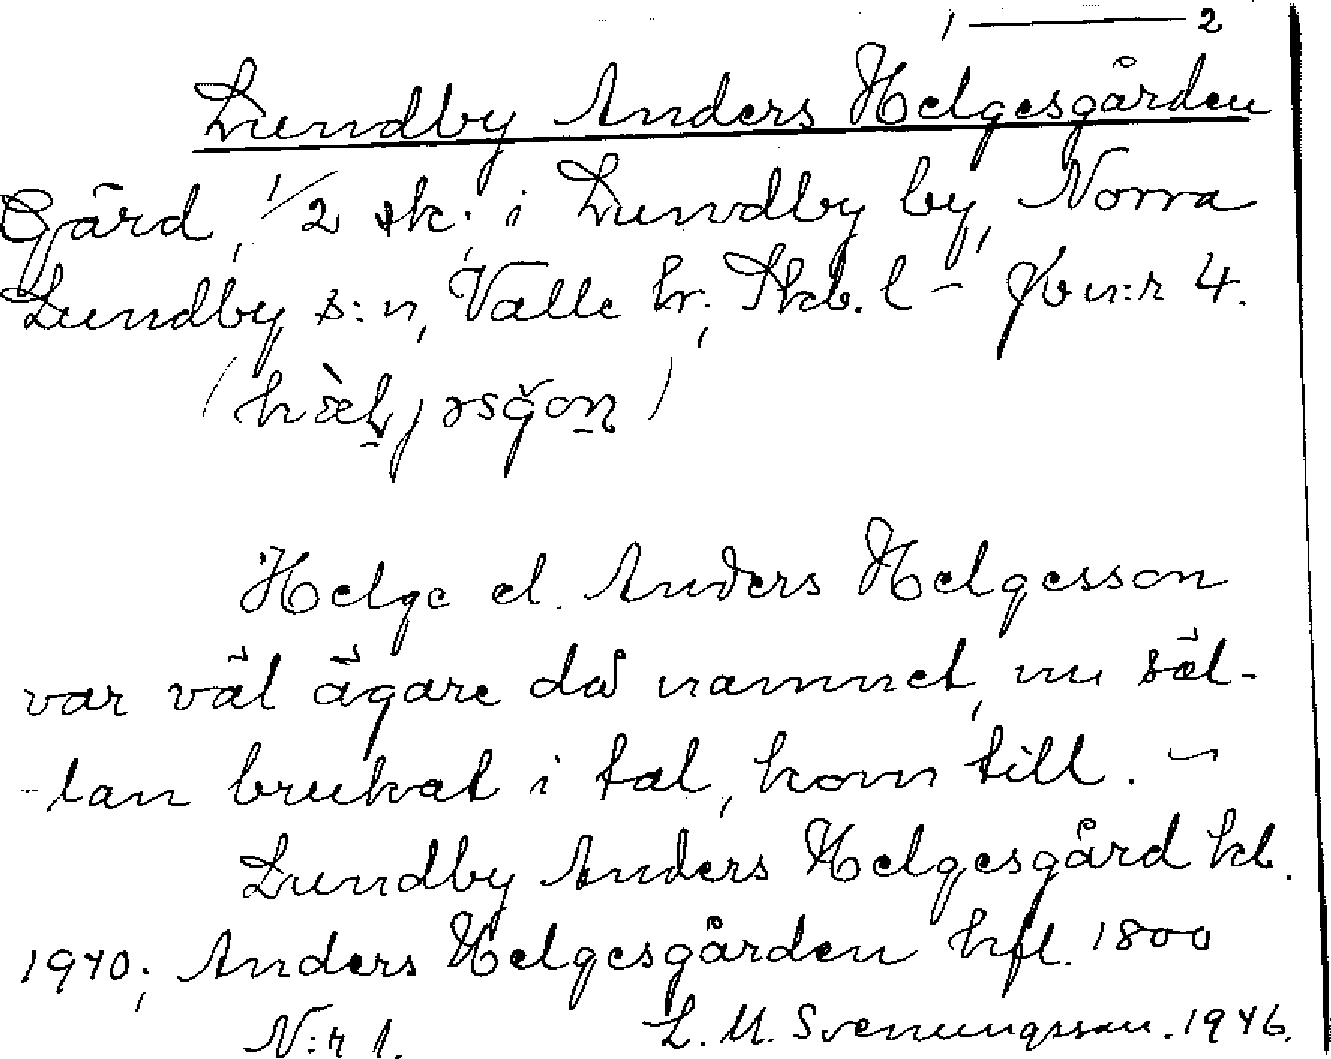 1 — 2
Lundby Anders Helgesgården
Gård, 1/2 sk. i Lundby by, Norra
Lundby s:n, Valle hr, Skb. l – Jb n:r 4.
Helge el. Anders Helgesson
var väl ägare då namnet, nu säl-
-lan brukat i tal, kom till. –
Lundby Anders Helgesgård kb.
1940; Anders Helgesgården hfl. 1800
N:r 1. L. M. Svenungsson. 1946.